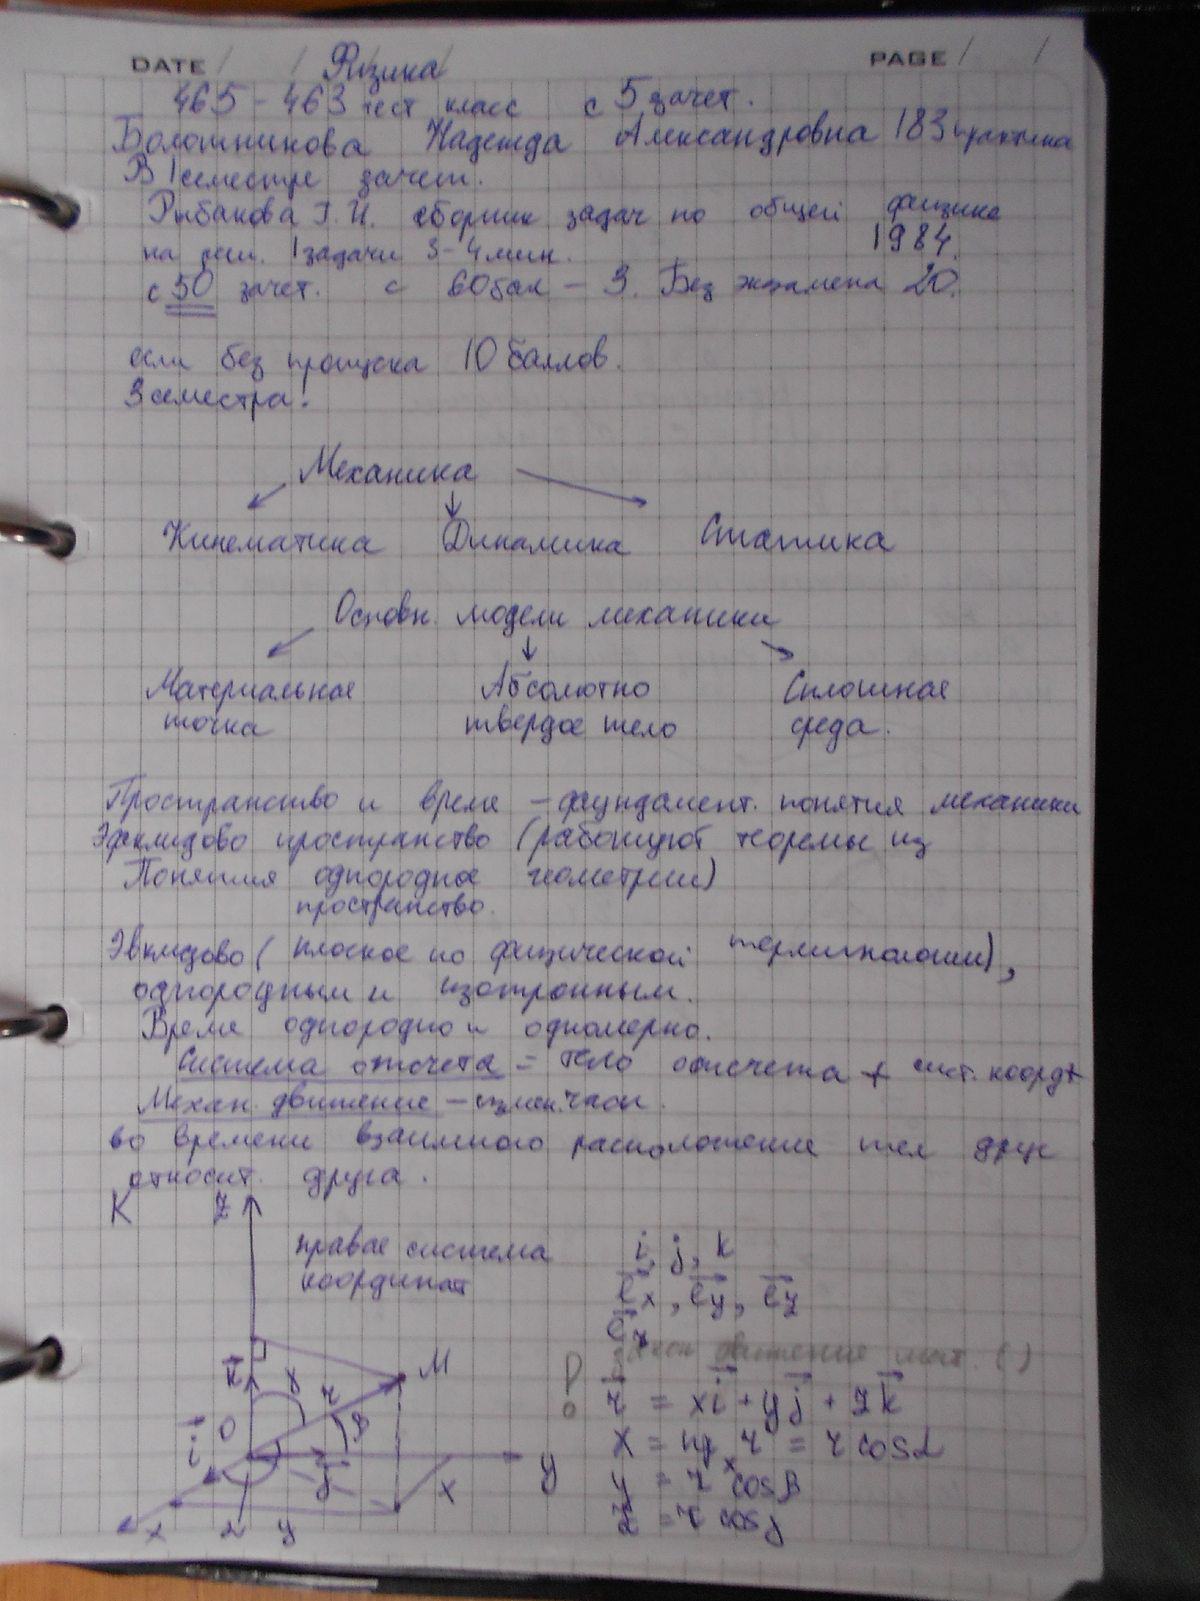 DATE / / Физика PAGE / /
465 - 463 тест класс с 5 зачет.
Болотникова Надежда Александровна 183 практика
В 1 семестре зачет.
Рыбакова Г. И. сборник задач по общей физике
1984.
на реш. 1 задачи 3-4 мин.
с 50 зачет. с 60 бал - 3. Без экзамена 20.
если без пропуска 10 баллов.
3 семестра!
Механика
Кинематика Динамика Статика
Основн. модели механики
Материальная Абсолютно Сплошная
точка твердое тело среда.
Пространство и время - фундамент. понятия механики
Эвклидово пространство (работают теоремы из
Понятия однородное геометрии)
пространство.
Эвклидово (плоское по физической терминологии),
однородным и изотропным.
Время однородно и одномерно.
Система отсчета = тело отсчета + сист. коорд +
Механ. движение - измен. часы.
во времени взаимного расположение тел друг
относит. друга.
K Z
правая система i, j, k
координат e⃗x, e⃗y, e⃗z
e⃗r
закон движения мат. ( )
M
k⃗ γ r β
r⃗ = xi⃗ + yj⃗ + zk⃗
i⃗ O
x = пр x r = r cos α
j⃗ x y
y = r cos β
x α y
z = r cos γ